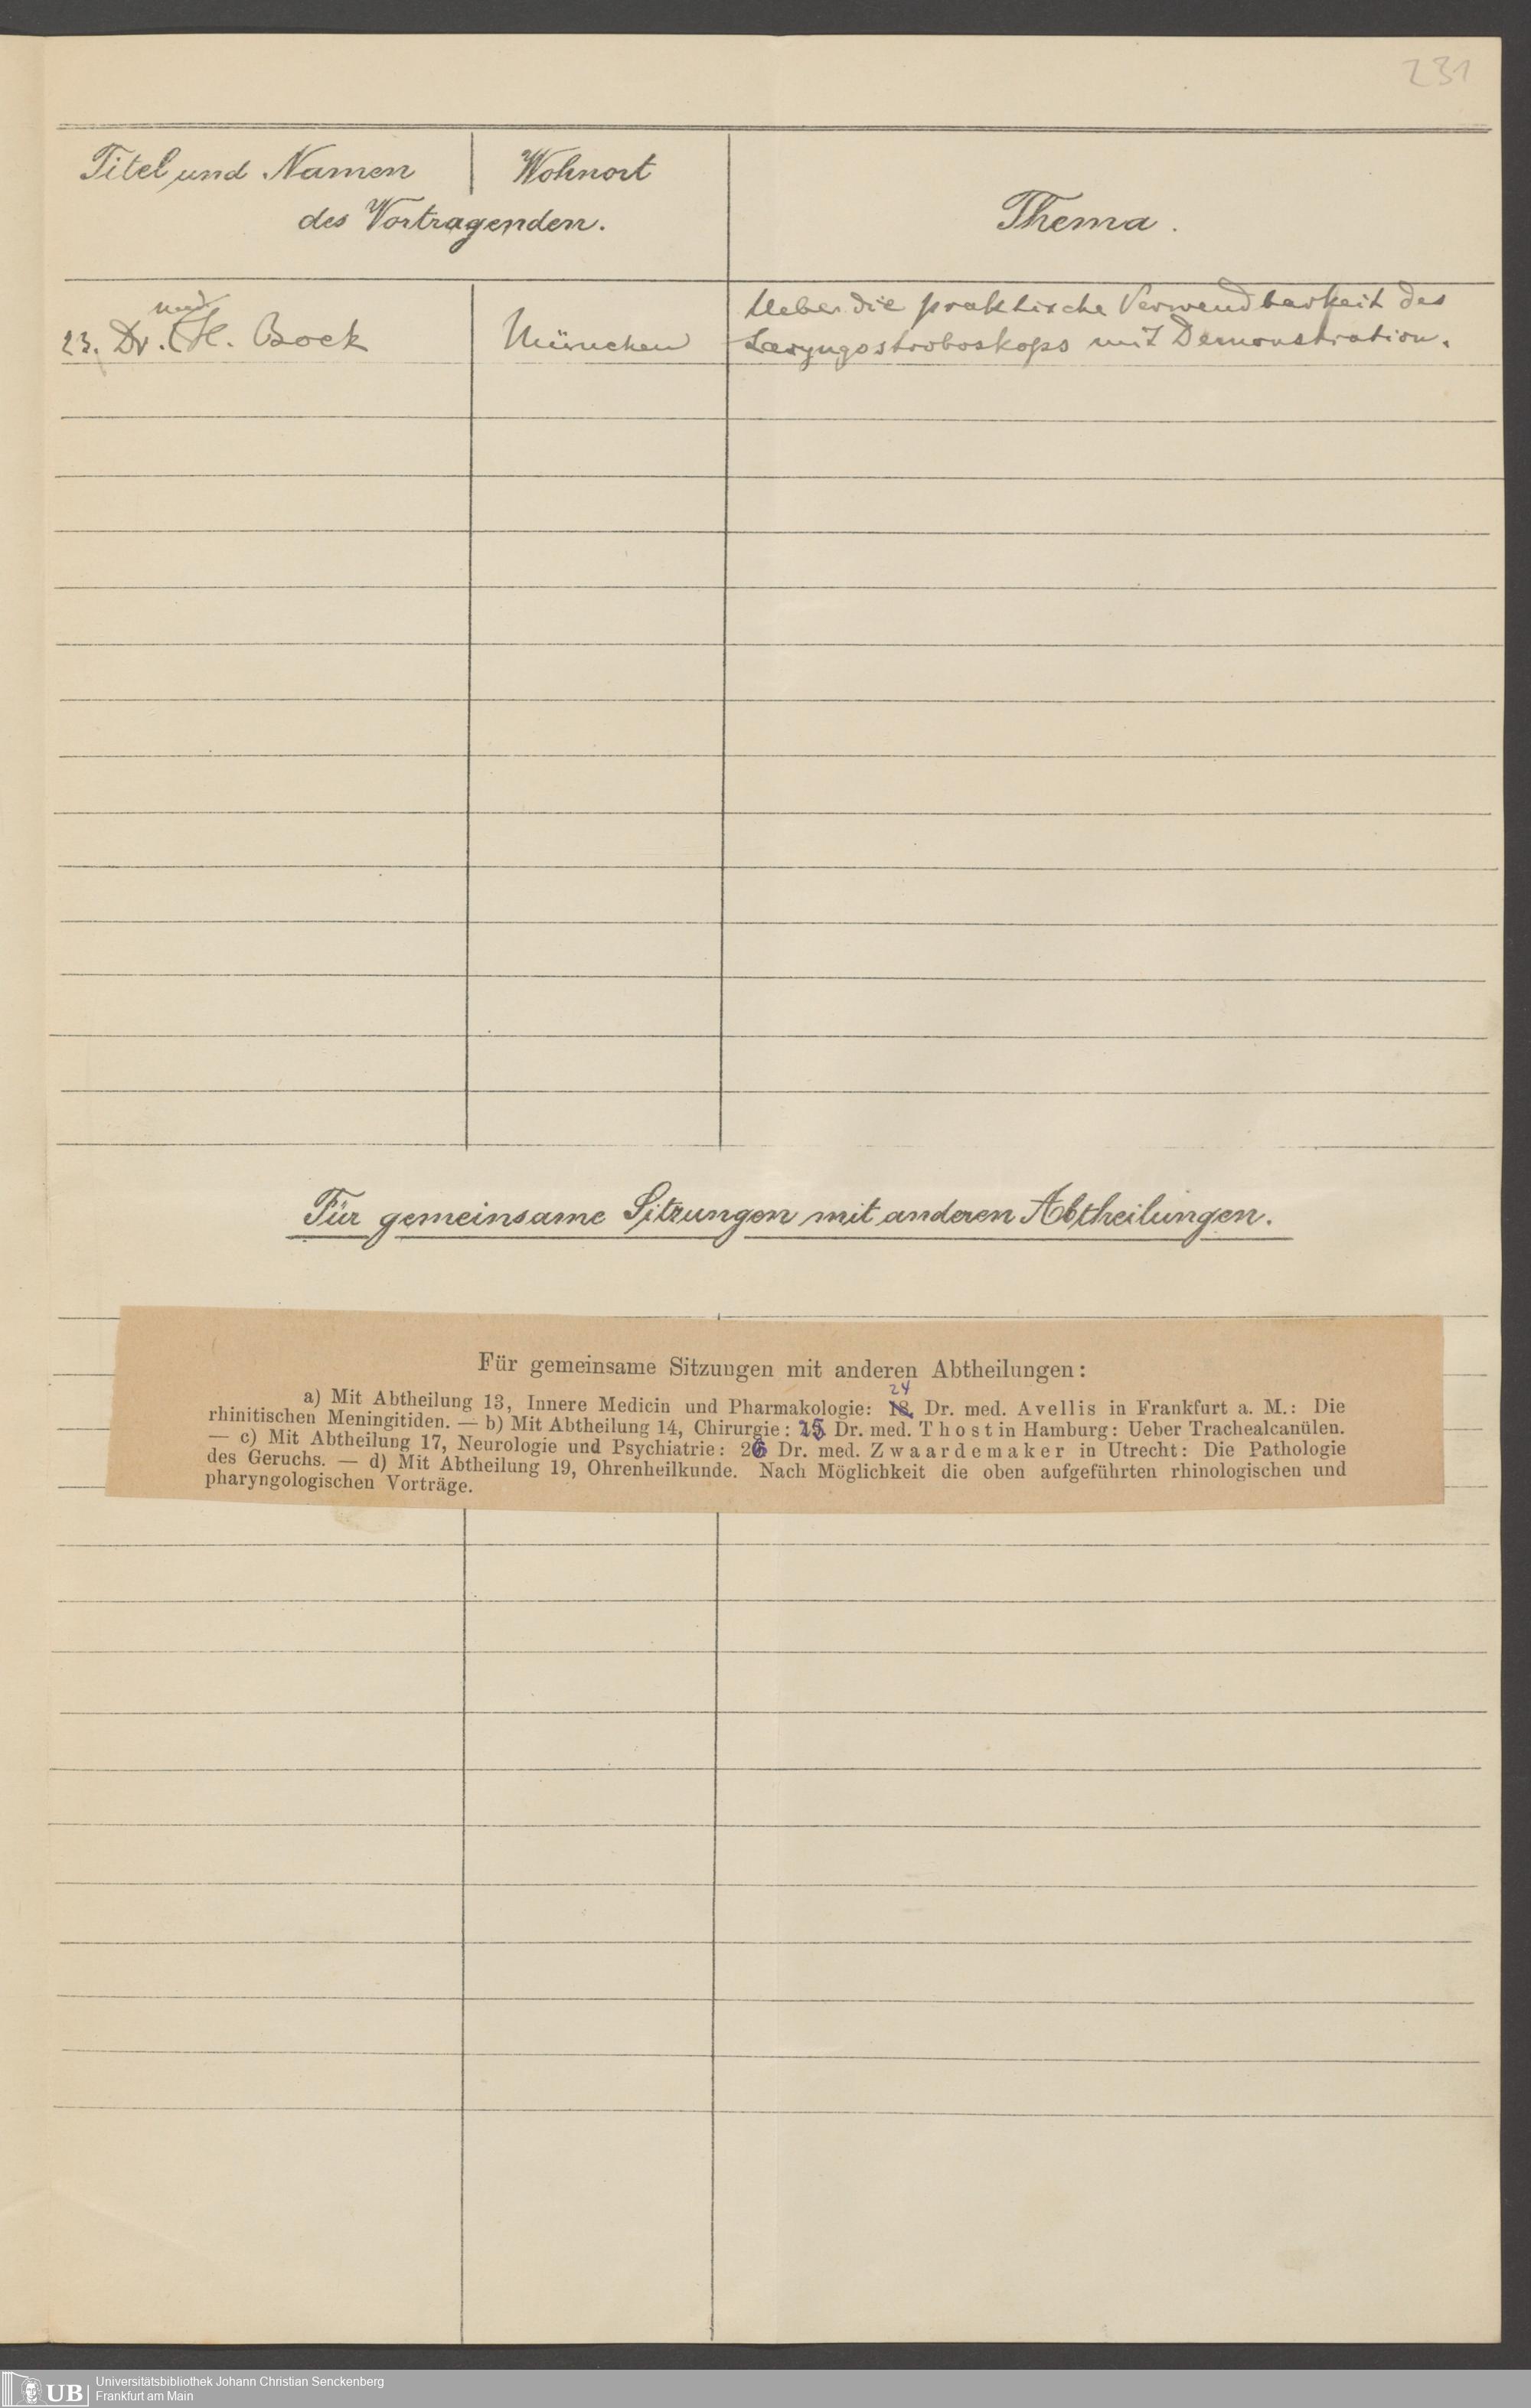 231
Titel und Namen | Wohnort
des Vortragenden.
Thema.
23. Dr. med. H. Bock
München
Ueber die praktische Verwendbarkeit des
Laryngostroboskops mit Demonstration.
Für gemeinsame Sitzungen mit anderen Abtheilungen.
Für gemeinsame Sitzungen mit anderen Abtheilungen:
24
a) Mit Abtheilung 13, Innere Medicin und Pharmakologie: 18. Dr. med. Avellis in Frankfurt a. M.: Die
rhinitischen Meningitiden. — b) Mit Abtheilung 14, Chirurgie: 25 Dr. med. Thost in Hamburg: Ueber Trachealcanülen.
— c) Mit Abtheilung 17, Neurologie und Psychiatrie: 26 Dr. med. Zwaardemaker in Utrecht: Die Pathologie
des Geruchs. — d) Mit Abtheilung 19, Ohrenheilkunde. Nach Möglichkeit die oben aufgeführten rhinologischen und
pharyngologischen Vorträge.
UB
Universitätsbibliothek Johann Christian Senckenberg
Frankfurt am Main